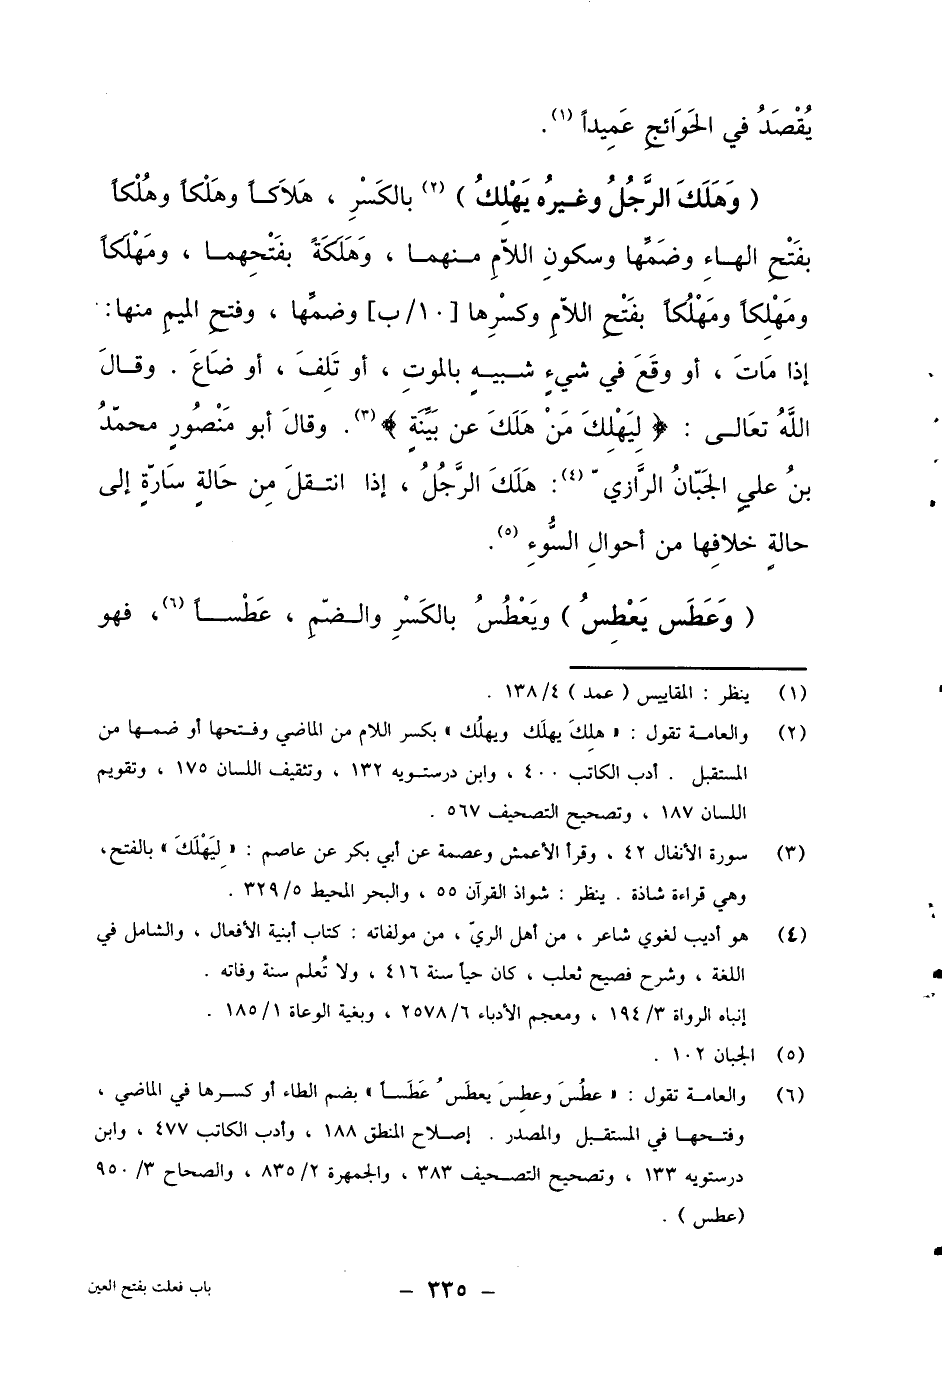 يُقْصَدُ في الحَوَائجِ عَمِيداً (١) .
( وَهَلَكَ الرَّجُلُ وغيرُه يَهْلِكُ ) (٢) بالكَسْرِ ، هَلاَكاً وهَلْكاً وهُلْكاً
بفَتْحِ الهاءِ وضَمِّها وسكونِ اللاَّمِ منهما ، وَهَلَكَةً بفَتْحِهما ، ومَهْلَكاً
ومَهْلِكاً ومَهْلُكاً بفَتْحِ اللاَّمِ وكسْرِها [١٠/ب] وضمِّها ، وفتحِ الميمِ منها :
إذا مَاتَ ، أو وقَعَ في شيءٍ شبيهٍ بالموتِ ، أو تَلِفَ ، أو ضَاعَ . وقالَ
اللَّهُ تعَالى : ﴿ لِيَهْلِكَ مَنْ هَلَكَ عن بَيِّنَةٍ ﴾ (٣) . وقالَ أبو مَنْصُورٍ محمّدُ
بنُ عليٍ الجَبّانُ الرَّازيّ (٤) : هَلَكَ الرَّجُلُ ، إذا انتقلَ مِن حَالةٍ سَارّةٍ إلى
حالةٍ خلافِها من أحوالِ السُّوءِ (٥) .
( وَعَطَسَ يَعْطِسُ ) ويَعْطُسُ بالكَسْرِ والضّمِ ، عَطْساً (٦) ، فهو
(١) ينظر : المقاييس ( عمد ) ٤/ ١٣٨ .
(٢) والعامة تقول : « هلِكَ يهلَك ويهلُك » بكسر اللام من الماضي وفتحها أو ضمها من
المستقبل . أدب الكاتب ٤٠٠ ، وابن درستويه ١٣٢ ، وتثقيف اللسان ١٧٥ ، وتقويم
اللسان ١٨٧ ، وتصحيح التصحيف ٥٦٧ .
(٣) سورة الأنفال ٤٢ ، وقرأ الأعمش وعصمة عن أبي بكر عن عاصم : « لِيَهْلَكَ » بالفتح،
وهي قراءة شاذة . ينظر : شواذ القرآن ٥٥ ، والبحر المحيط ٥/ ٣٢٩ .
(٤) هو أديب لغوي شاعر ، من أهل الريّ ، من مولفاته : كتاب أبنية الأفعال ، والشامل في
اللغة ، وشرح فصيح ثعلب ، كان حياً سنة ٤١٦ ، ولا تُعلم سنة وفاته .
إنباه الرواة ٣/ ١٩٤ ، ومعجم الأدباء ٦/ ٢٥٧٨ ، وبغية الوعاة ١/ ١٨٥ .
(٥) الجبان ١٠٢ .
(٦) والعامة تقول : « عطُسَ وعطِسَ يعطَسُ عَطَساً » بضم الطاء أو كسرها في الماضي ،
وفتحها في المستقبل والمصدر . إصلاح المنطق ١٨٨ ، وأدب الكاتب ٤٧٧ ، وابن
درستويه ١٣٣ ، وتصحيح التصحيف ٣٨٣ ، والجمهرة ٢/ ٨٣٥ ، والصحاح ٣/ ٩٥٠
(عطس ) .
- ٣٣٥ -
باب فعلت بفتح العين